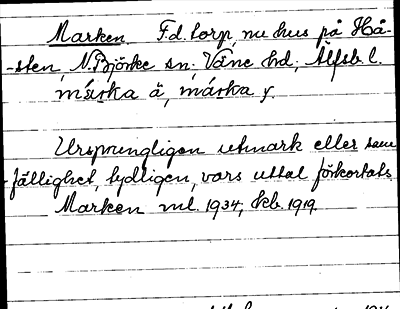 Marken. F.d. torp, nu hus på Hå-
-sten, N. Björke sn; Väne hd; Älfsb. l.
márka ä, márka y.
Ursprungligen utmark eller sam
-fällighet, tydligen, vars uttal förkortats
Marken ml. 1934, kb. 1919.